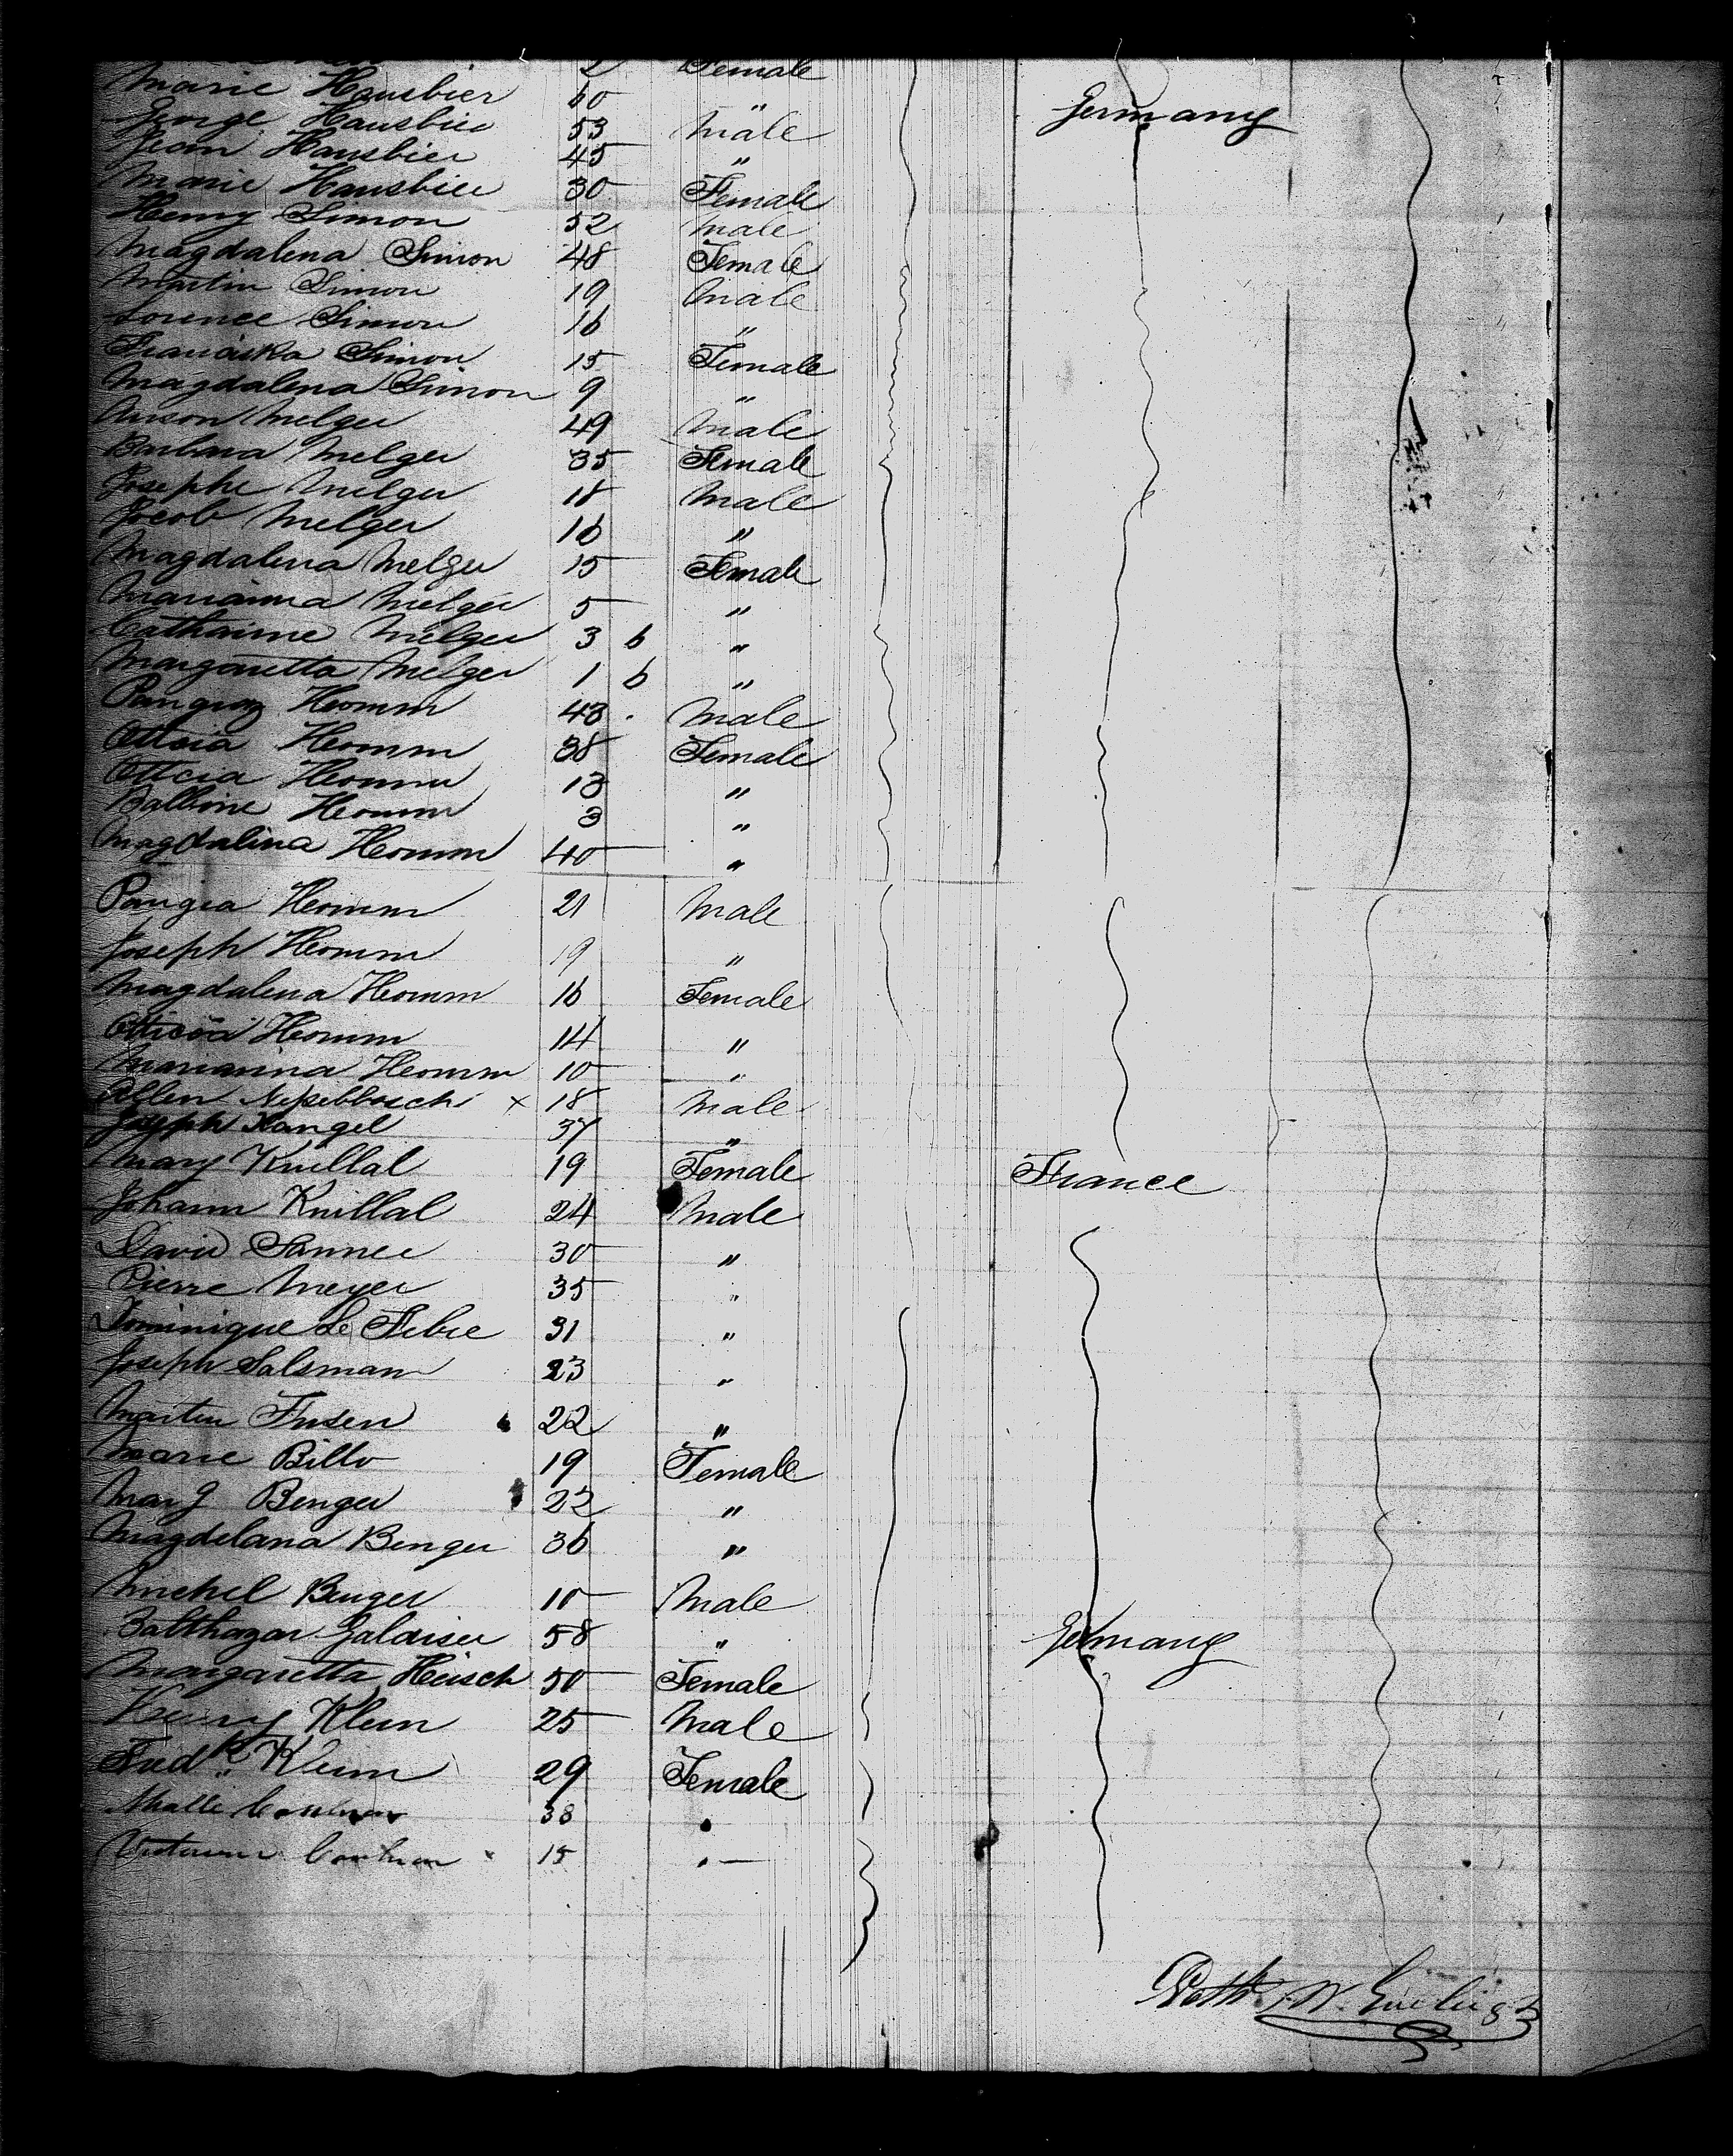 2 Female
Marie Hausbier 60 "
George Hausbier 53 Male Germany
Jean Hausbier 45 "
Marie Hausbier 30 Female
Henry Simon 52 Male
Magdalena Simon 48 Female
Martin Simon 19 Male
Lorence Simon 16 "
Franciska Simon 15 Female
Magdalena Simon 9 "
Anson Melger 49 Male
Barbara Melger 35 Female
Josephe Melger 18 Male
Jacob Melger 16 "
Magdalena Melger 15 Female
Marianna Melger 5 "
Catharine Melger 3 6 "
Margaretta Melger 1 6 "
Pangraz Homm 43 Male
Homm 38 Female
Homm 13 "
Balbine Homm 3 "
Magdalina Homm 40 "
Pangea Homm 21 Male
Joseph Homm 19 "
Magdalena Homm 16 Female
Homm 14 "
Marianna Homm 10 "
Allen x 18 Male
Joseph Kangel 37 "
Mary Knillal 19 Female France
Johann Knillal 24 Male
David Sannee 30 "
Pierre Meyer 35 "
Dominique Le Febre 31 "
Joseph Salsman 23 "
Martin Fusen 22 "
Marie Billo 19 Female
Mary Benger 22 "
Magdelana Benger 36 "
Michel Benger 10 Male
Balthazar Galaiser 58 " Germany
Margaretta Heisch 50 Female
Henry Klein 25 Male
Fredk. Klein 29 Female
38 "
15 "